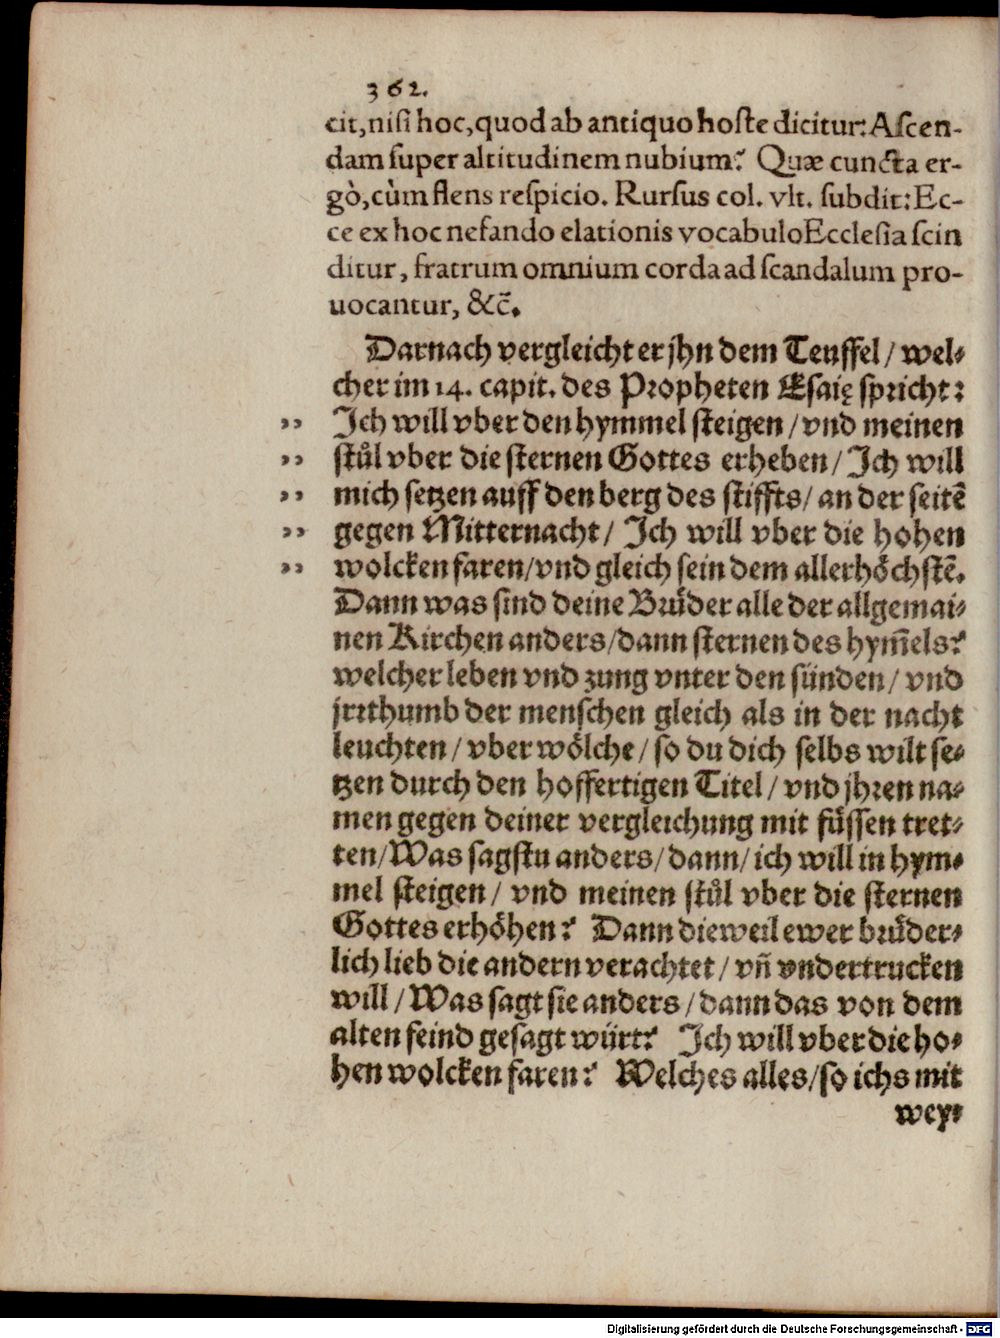 362.
cit, nisi hoc, quod ab antiquo hoste dicitur: Ascen-
dam super altitudinem nubium? Quæ cuncta er-
gò, cùm flens respicio. Rursus col. vlt. subdit: Ec-
ce ex hoc nefando elationis vocabulo Ecclesia scin
ditur, fratrum omnium corda ad scandalum pro-
uocantur, &c̃.
Darnach vergleicht er jhn dem Teuffel / wel-
cher im 14. capit. des Propheten Esaię spricht:
,, Ich will vber den hymmel steigen / vnd meinen
,, stůl vber die sternen Gottes erheben / Ich will
,, mich setzen auff den berg des stiffts / an der seitẽ
,, gegen Mitternacht / Ich will vber die hohen
,, wolcken faren / vnd gleich sein dem allerhöchstẽ.
Dann was sind deine Bruͤder alle der allgemai-
nen Kirchen anders / dann sternen des hym̃els?
welcher leben vnd zung vnter den sünden / vnd
jrrthumb der menschen gleich als in der nacht
leuchten / vber woͤlche / so du dich selbs wilt se-
tzen durch den hoffertigen Titel / vnd jhren na-
men gegen deiner vergleichung mit fuͤssen tret-
ten / Was sagstu anders / dann / ich will in hym-
mel steigen / vnd meinen stůl vber die sternen
Gottes erhöhen? Dann dieweil ewer bruͤder-
lich lieb die andern verachtet / vñ vndertrucken
will / Was sagt sie anders / dann das von dem
alten feind gesagt würt? Ich will vber die ho-
hen wolcken faren? Welches alles / so ichs mit
wey-
Digitalisierung gefördert durch die Deutsche Forschungsgemeinschaft - DFG